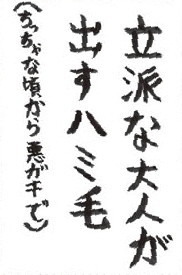 立派な大人が
出すハミ毛
(ちっちゃな頃から悪がキで)